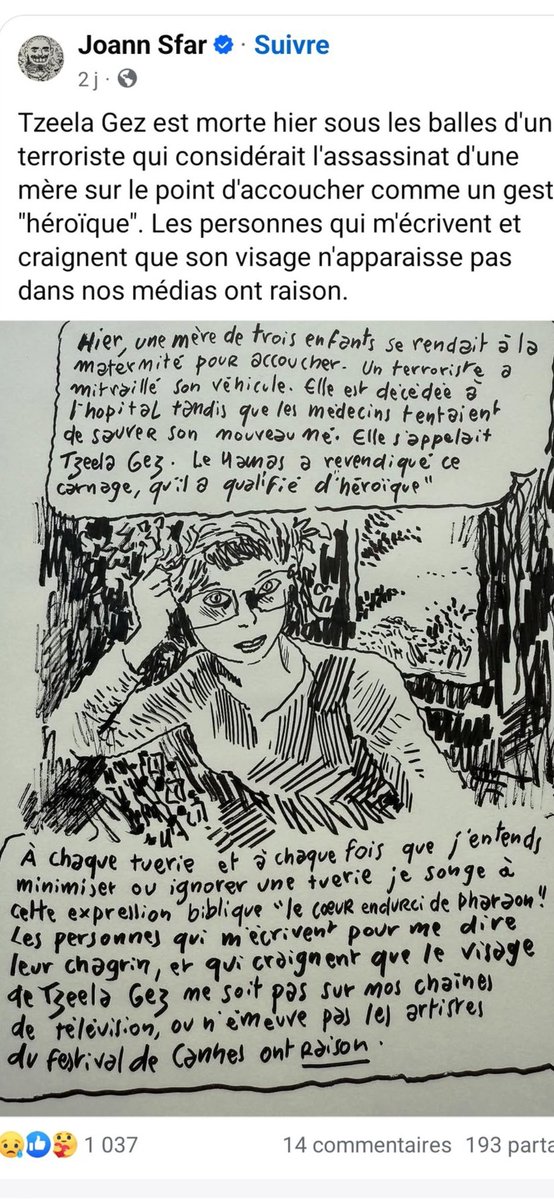 Joann Sfar · Suivre
2 j ·
Tzeela Gez est morte hier sous les balles d'un
terroriste qui considérait l'assassinat d'une
mère sur le point d'accoucher comme un gest
"héroïque". Les personnes qui m'écrivent et
craignent que son visage n'apparaisse pas
dans nos médias ont raison.
Hier, une mère de trois enfants se rendait à la
maternité pour accoucher. Un terroriste a
mitraillé son véhicule. Elle est décédée à
l'hopital tandis que les médecins tentaient
de sauver son nouveau né. Elle s'appelait
Tzeela Gez. Le Hamas a revendiqué ce
carnage, qu'il a qualifié d'héroïque"
À chaque tuerie et à chaque fois que j'entends
minimiser ou ignorer une tuerie je songe à
cette expression biblique "le cœur endurci de Pharaon".
Les personnes qui m'écrivent pour me dire
leur chagrin, et qui craignent que le visage
de Tzeela Gez ne soit pas sur nos chaînes
de télévision, ou n'émeuve pas les artistes
du festival de Cannes ont raison.
1 037
14 commentaires 193 parta